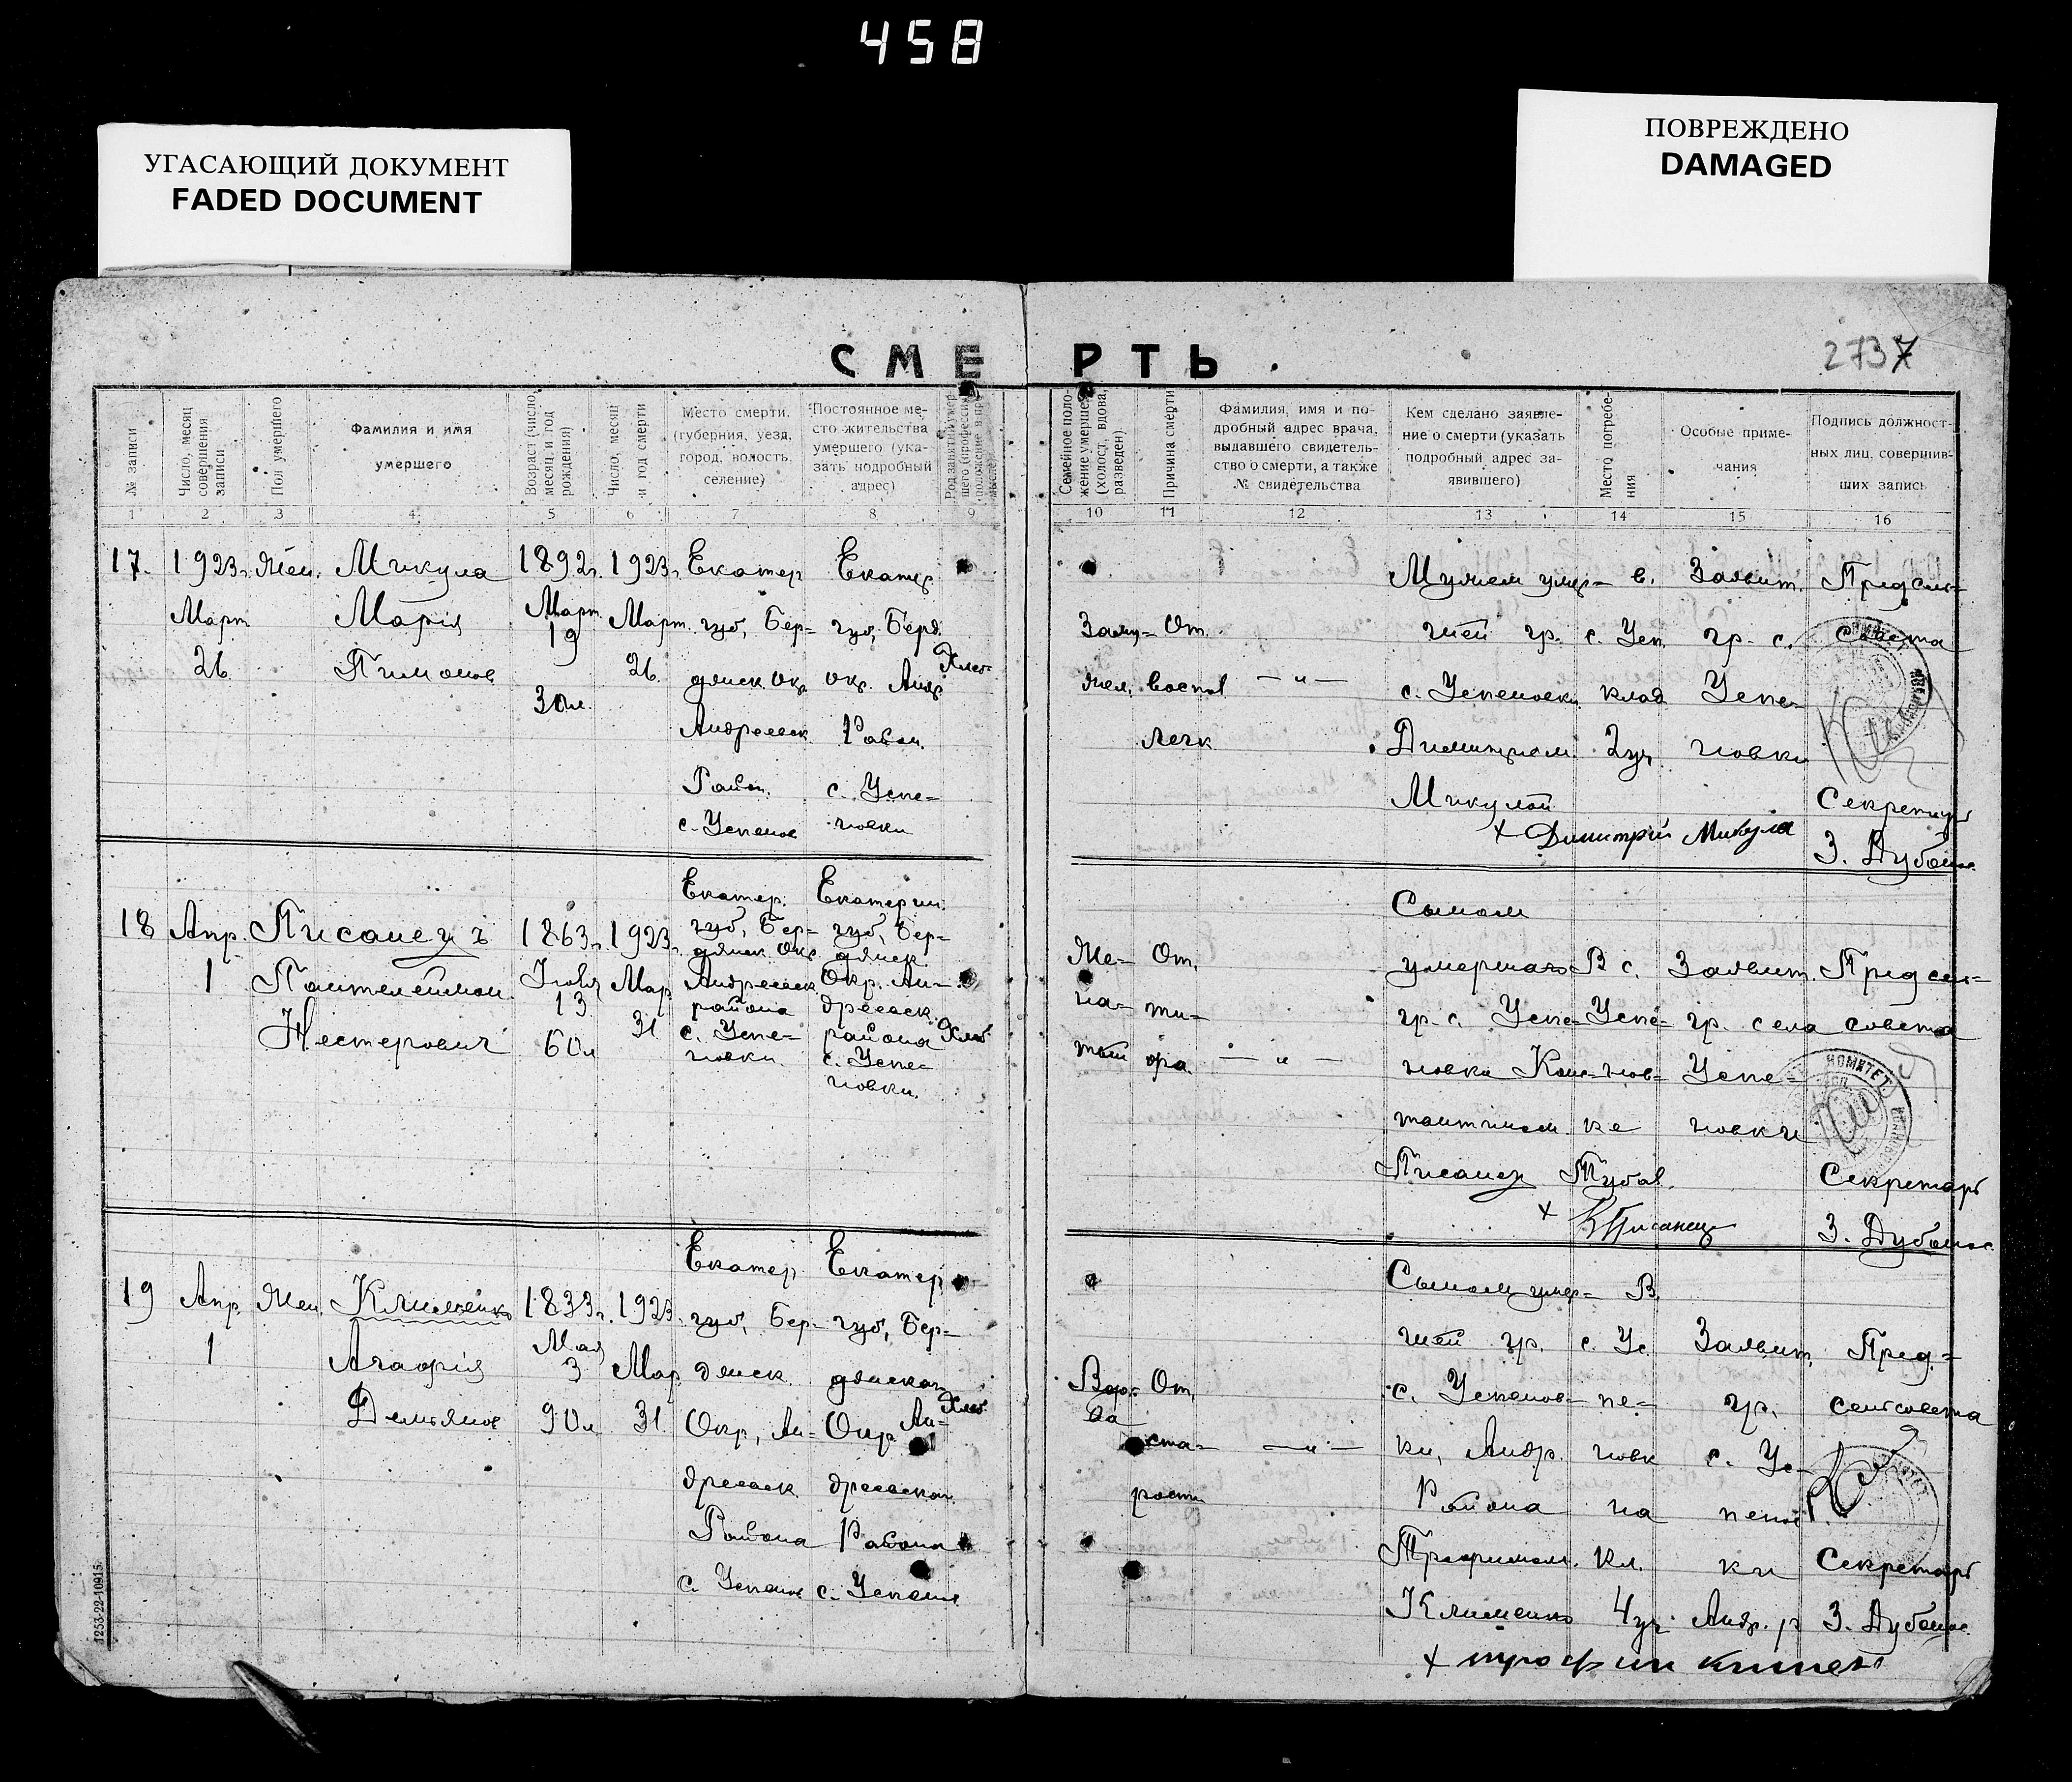 458
УГАСАЮЩИЙ ДОКУМЕНТ
FADED DOCUMENT
ПОВРЕЖДЕНО
DAMAGED
СМЕРТЬ.
2737
№ записи
Число, месяц совершения записи
Пол умершего
Фамилия и имя
умершего
Возраст (число, месяц и год рождения)
Число, месяц и год смерти
Место смерти.
(губерния, уезд,
город, волость,
селение)
Постоянное ме-
сто жительства
умершего (ука-
зать подробный
адрес)
Семейное поло-
жение умершего
(холост, вдова,
разведен).
Причина смерти
Фамилия, имя и по-
дробный адрес врача,
выдавшего свидетель-
ство о смерти, а также
№ свидетельства
Кем сделано заявле-
ние о смерти (указать
подробный адрес за-
явившего)
Место погребе-
ния
Особые приме-
чания
Подпись должност-
ных лиц, совершив-
ших запись
1 2 3 4 5 6 7 8 9 10 11 12 13 14 15 16
17.
1923г.
Март
26
Жен.
Микула
Марія
Пимонов
1892г.
Март
19
30л.
1923г.
Март.
26
Екатер
губ, Бер-
дянск. Окр
Андреевск
Район.
с. Успенов
Екатер
губ, Берд.
окр. Андр
Район.
с. Успе-
новки
Хлеб
Заму-
жел,
От.
воспал
легк
— „ —
Мужем умер-
шей гр.
с. Успеновки
Димитрием
Микулой
в.
с. Усп.
клад
2уч
Заявит.
гр. с.
Успе-
новки
Пред сель-
Совета
Секретарь
З. Дубовик
+ Димитрий Микула
18
Апр.
1
Писанец ъ
Пантелеймон
Нестерович
1863г.
Іюля
13
60л
1923г.
Мар
31
Екатер.
губ, Бер-
дянск Окр
Андреевск
района
с. Успе-
новки
Екатерин.
губ, Бер-
дянск.
Окр. Ан-
дреевск.
района
с. Успе-
новки.
Хлеб
Же-
на-
тый
От.
ти-
фа.
— „ —
Сыном
умершаго
гр. с. Успе-
новки Кон-
стантином
Писанец
В с.
Успе-
нов-
ке
Заявит.
гр. села
Успе-
новки
Пред сел-
совета
КОМИТЕТ
Секретарь
З. Дубовик
+ К Писанец
19
Апр.
1
Жен
Клименко
Агафія
Демьянов
1833г.
Мая
3
90л
1923.
Мар
31
Екатер
губ, Бер-
дянск
Окр, Ан-
дреевск
Района
с. Успенов
Екатер
губ, Бер-
дянскаг
Окр Ан-
дреевскаг
Района
с. Успенов
Хлеб
Вдо-
ва
От,
ста-
рости
— „ —
Сыном умер-
шей гр.
с. Успенов-
ки, Андр.
Района
Трофимом.
Клименко
В.
с. Ус
пе-
новк
на
кл.
4уч
Заявит.
гр.
с. Ус-
пенов
ки
Андр. р
Пред.-
сельсовета
Секретарь
З. Дубовик
1253-22-10915